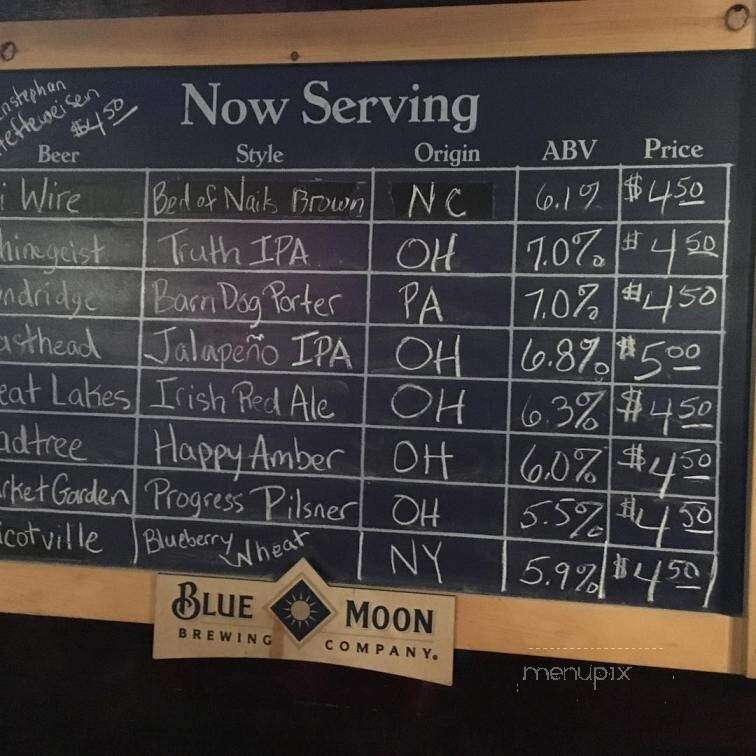 nstephan
Hefteweisen
$4.50
Now Serving
Beer Style Origin ABV Price
i Wire Bed of Nails Brown NC 6.1% $4.50
hinegeist Truth IPA OH 7.0% $4.50
ndridge Barn Dog Porter PA 7.0% $4.50
asthead Jalapeño IPA OH 6.8% $5.00
eat Lakes Irish Red Ale OH 6.3% $4.50
adtree Happy Amber OH 6.0% $4.50
rket Garden Progress Pilsner OH 5.5% $4.50
icotville Blueberry Wheat NY 5.9% $4.50
BLUE MOON
BREWING COMPANY
menupix